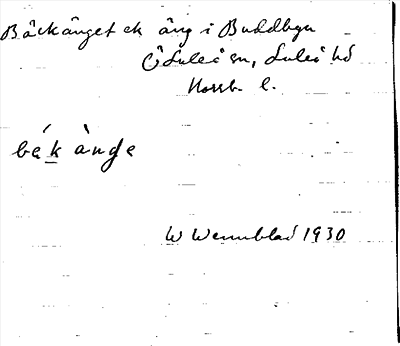 Bäckänget ek äng i Buddbyn
Ö Luleå sn, Luleå hd
Norrb. l.
bék àŋge
W Wennblad 1930